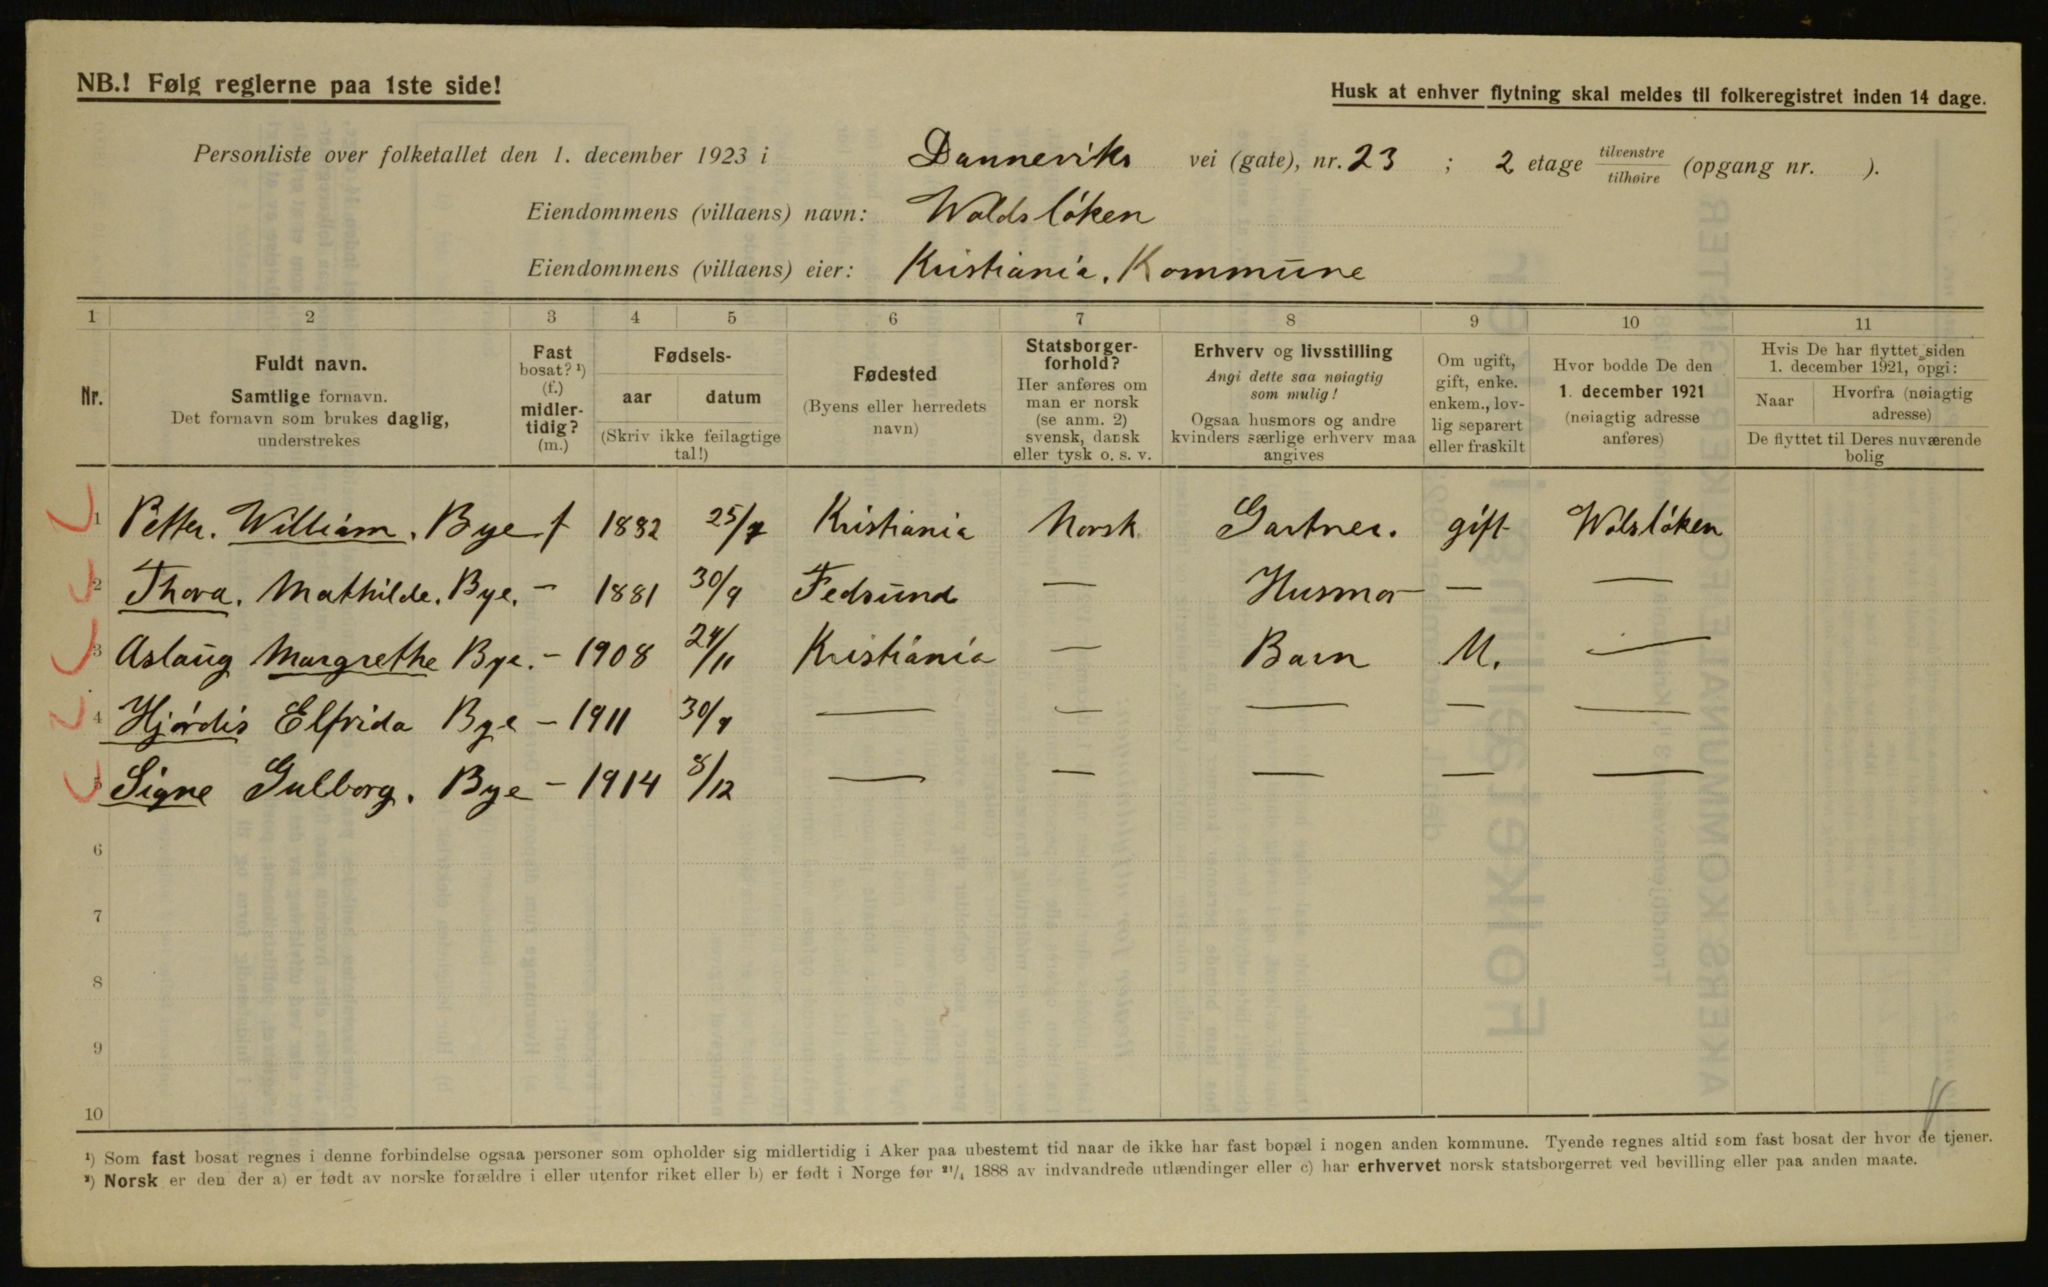 NB.! Følg reglerne paa 1ste side!
Husk at enhver flytning skal meldes til folkeregistret inden 14 dage.
Personliste over folketallet den 1. december 1923 i Danneviks vei (gate), nr. 23 ; 2 etage tilvenstre/tilhøire (opgang nr. ).
Eiendommens (villaens) navn: Woldsløken
Eiendommens (villaens) eier: Kristiania. Kommune
1 2 3 4 5 6 7 8 9 10 11
Nr.
Fuldt navn.
Samtlige fornavn.
Det fornavn som brukes daglig,
understrekes
Fast
bosat? ¹)
(f.)
midler-
tidig?
(m.)
Fødsels-
aar datum
(Skriv ikke feilagtige
tal!)
Fødested
(Byens eller herredets
navn)
Statsborger-
forhold?
Her anføres om
man er norsk
(se anm. 2)
svensk, dansk
eller tysk o. s. v.
Erhverv og livsstilling
Angi dette saa nøiagtig
som mulig!
Ogsaa husmors og andre
kvinders særlige erhverv maa
angives
Om ugift,
gift, enke.
enkem., lov-
lig separert
eller fraskilt
Hvor bodde De den
1. december 1921
(nøiagtig adresse
anføres)
Hvis De har flyttet siden
1. december 1921, opgi:
Naar
Hvorfra (nøiagtig
adresse)
De flyttet til Deres nuværende
bolig
1 Petter. William. Bye f 1882 25/7 Kristiania Norsk Gartner. gift Wolsløken
2 Thora. Mathilde. Bye. — 1881 30/9 Fedsund — Husmor — —
3 Aslaug Margrethe Bye. — 1908 24/11 Kristiania — Barn U. —
4 Hjørdis Elfrida Bye — 1911 30/9 — — — — —
5 Signe Gulborg. Bye — 1914 8/12 — — — — —
6
7
8
9
10
¹) Som fast bosat regnes i denne forbindelse ogsaa personer som opholder sig midlertidig i Aker paa ubestemt tid naar de ikke har fast bopæl i nogen anden kommune. Tyende regnes altid som fast bosat der hvor de tjener.
²) Norsk er den der a) er født av norske forældre i eller utenfor riket eller b) er født i Norge før ²¹/₄ 1888 av indvandrede utlændinger eller c) har erhvervet norsk statsborgerret ved bevilling eller paa anden maate.